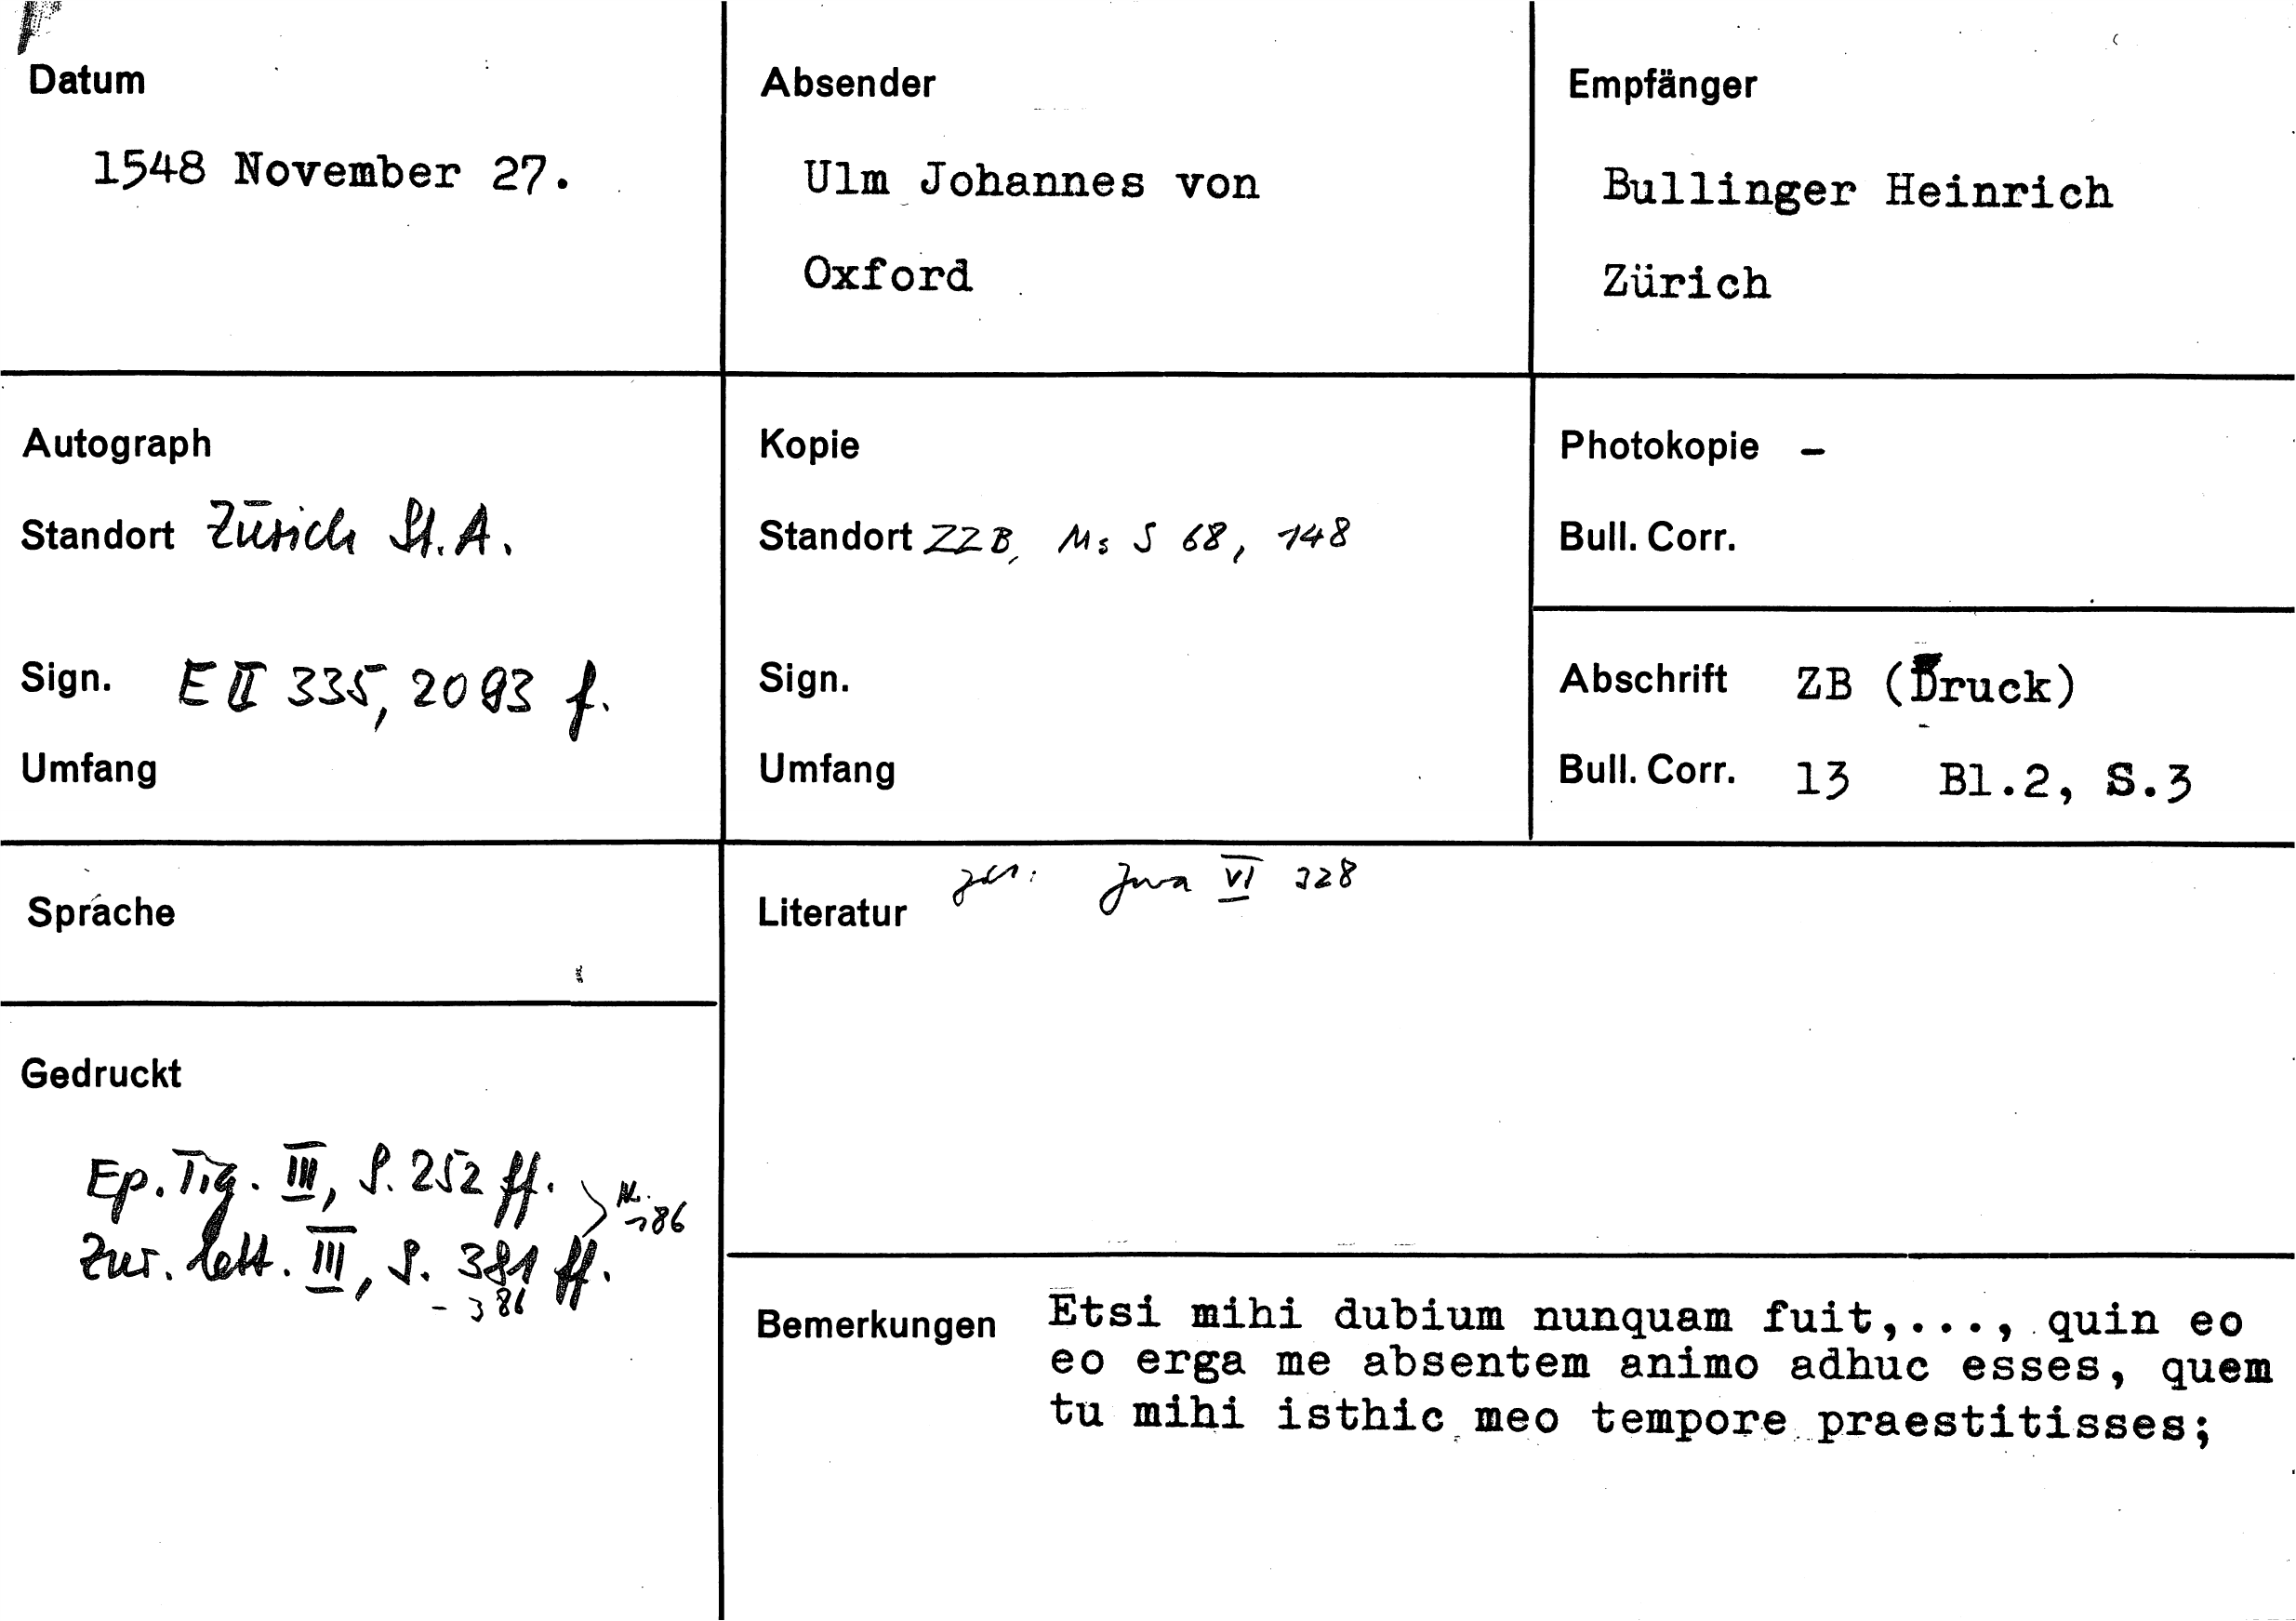 Datum
1548 November 27.
Absender
Ulm Johannes von
Oxford
Empfänger
Bullinger Heinrich
Zürich
Autograph
Standort Zürich St. A.
Sign. E II 335, 2093 f.
Umfang
Kopie
Standort ZZB, Ms S 68, 148
Sign.
Umfang
Photokopie -
Bull. Corr.
Abschrift ZB (Druck)
Bull. Corr. 13 Bl.2, S.3
Sprache
Gedruckt
Ep. Tig. III, S. 252 ff.
186
Zur. lett. III, S. 381 ff.
- 386
Literatur VI 328
Bemerkungen Etsi mihi dubium nunquam fuit,..., quin eo
eo erga me absentem animo adhuc esses, quem
tu mihi isthic meo tempore praestitisses;